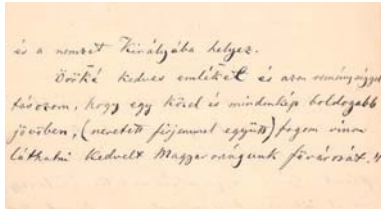 és a nemzet Királyába helyez.
Örökké kedves emlékűl és azon reménységgel
hogy egy közel és mindenkép boldogabb
jövőben, (szeretett férjemmel együtt) fogom
láthatni Kedvelt Magyarországunk fővárosát."